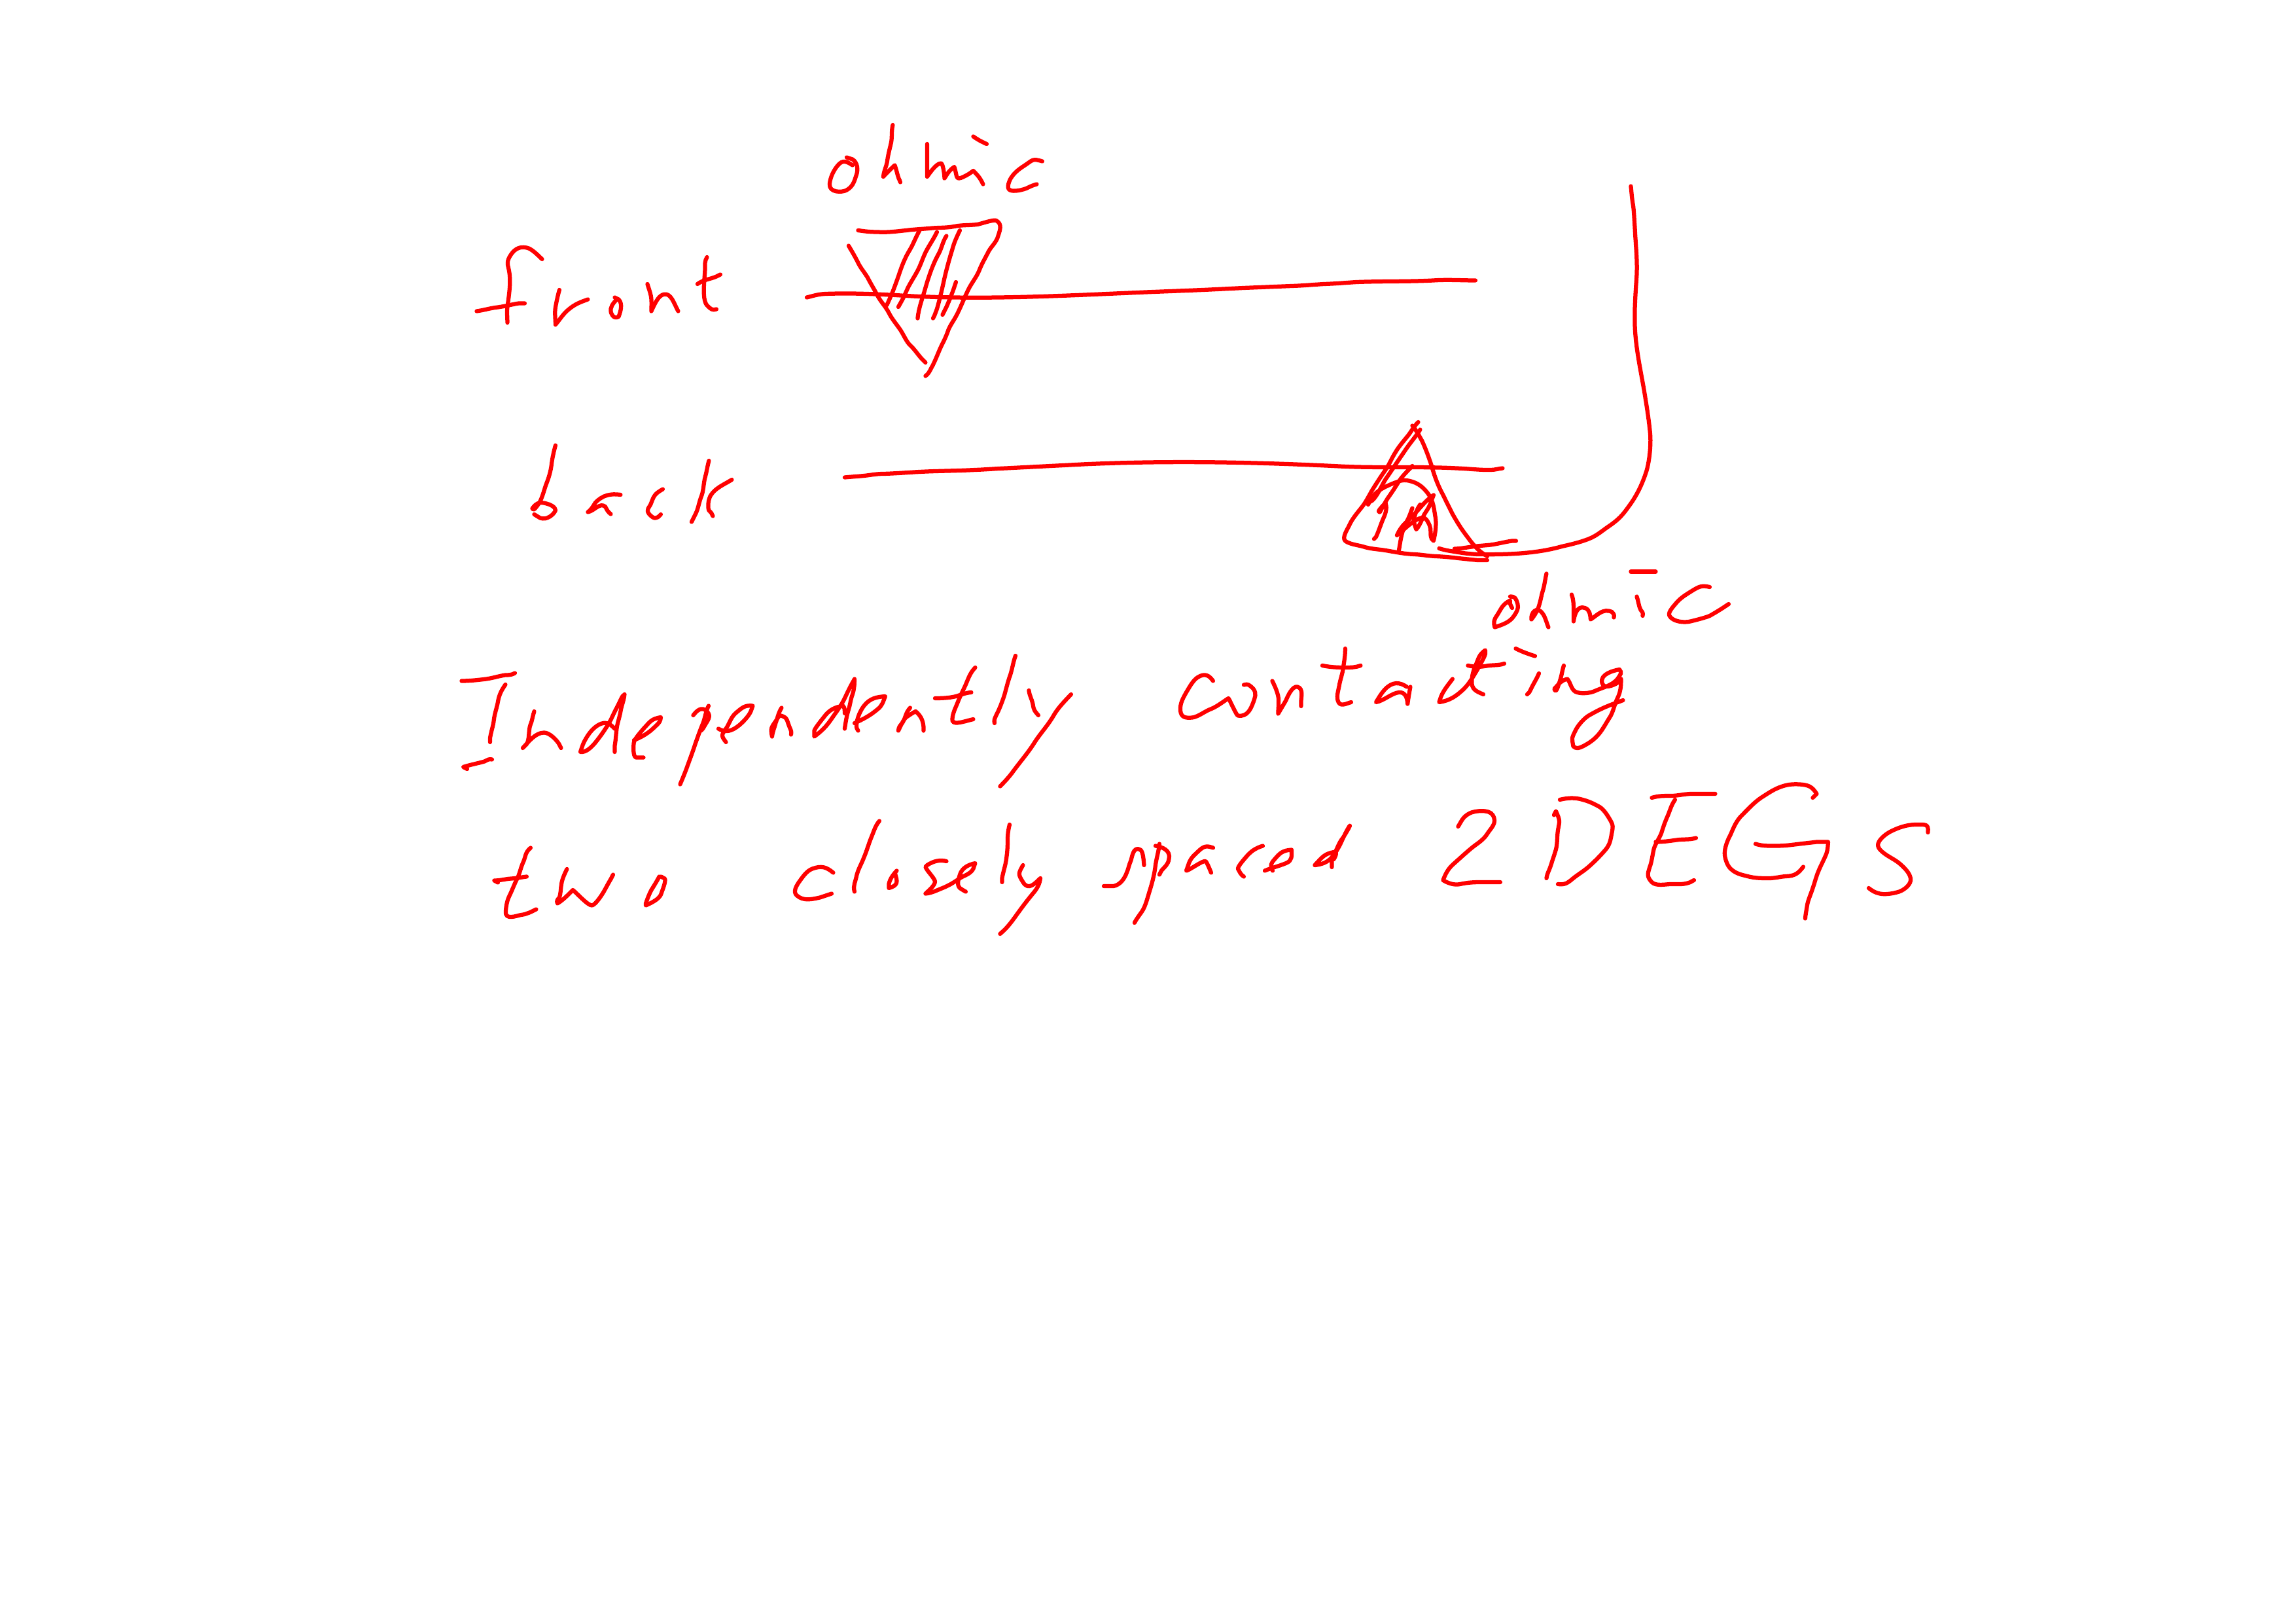 ohmic
front
back
ohmic
Independently contacting
two closely spaced 2DEGs